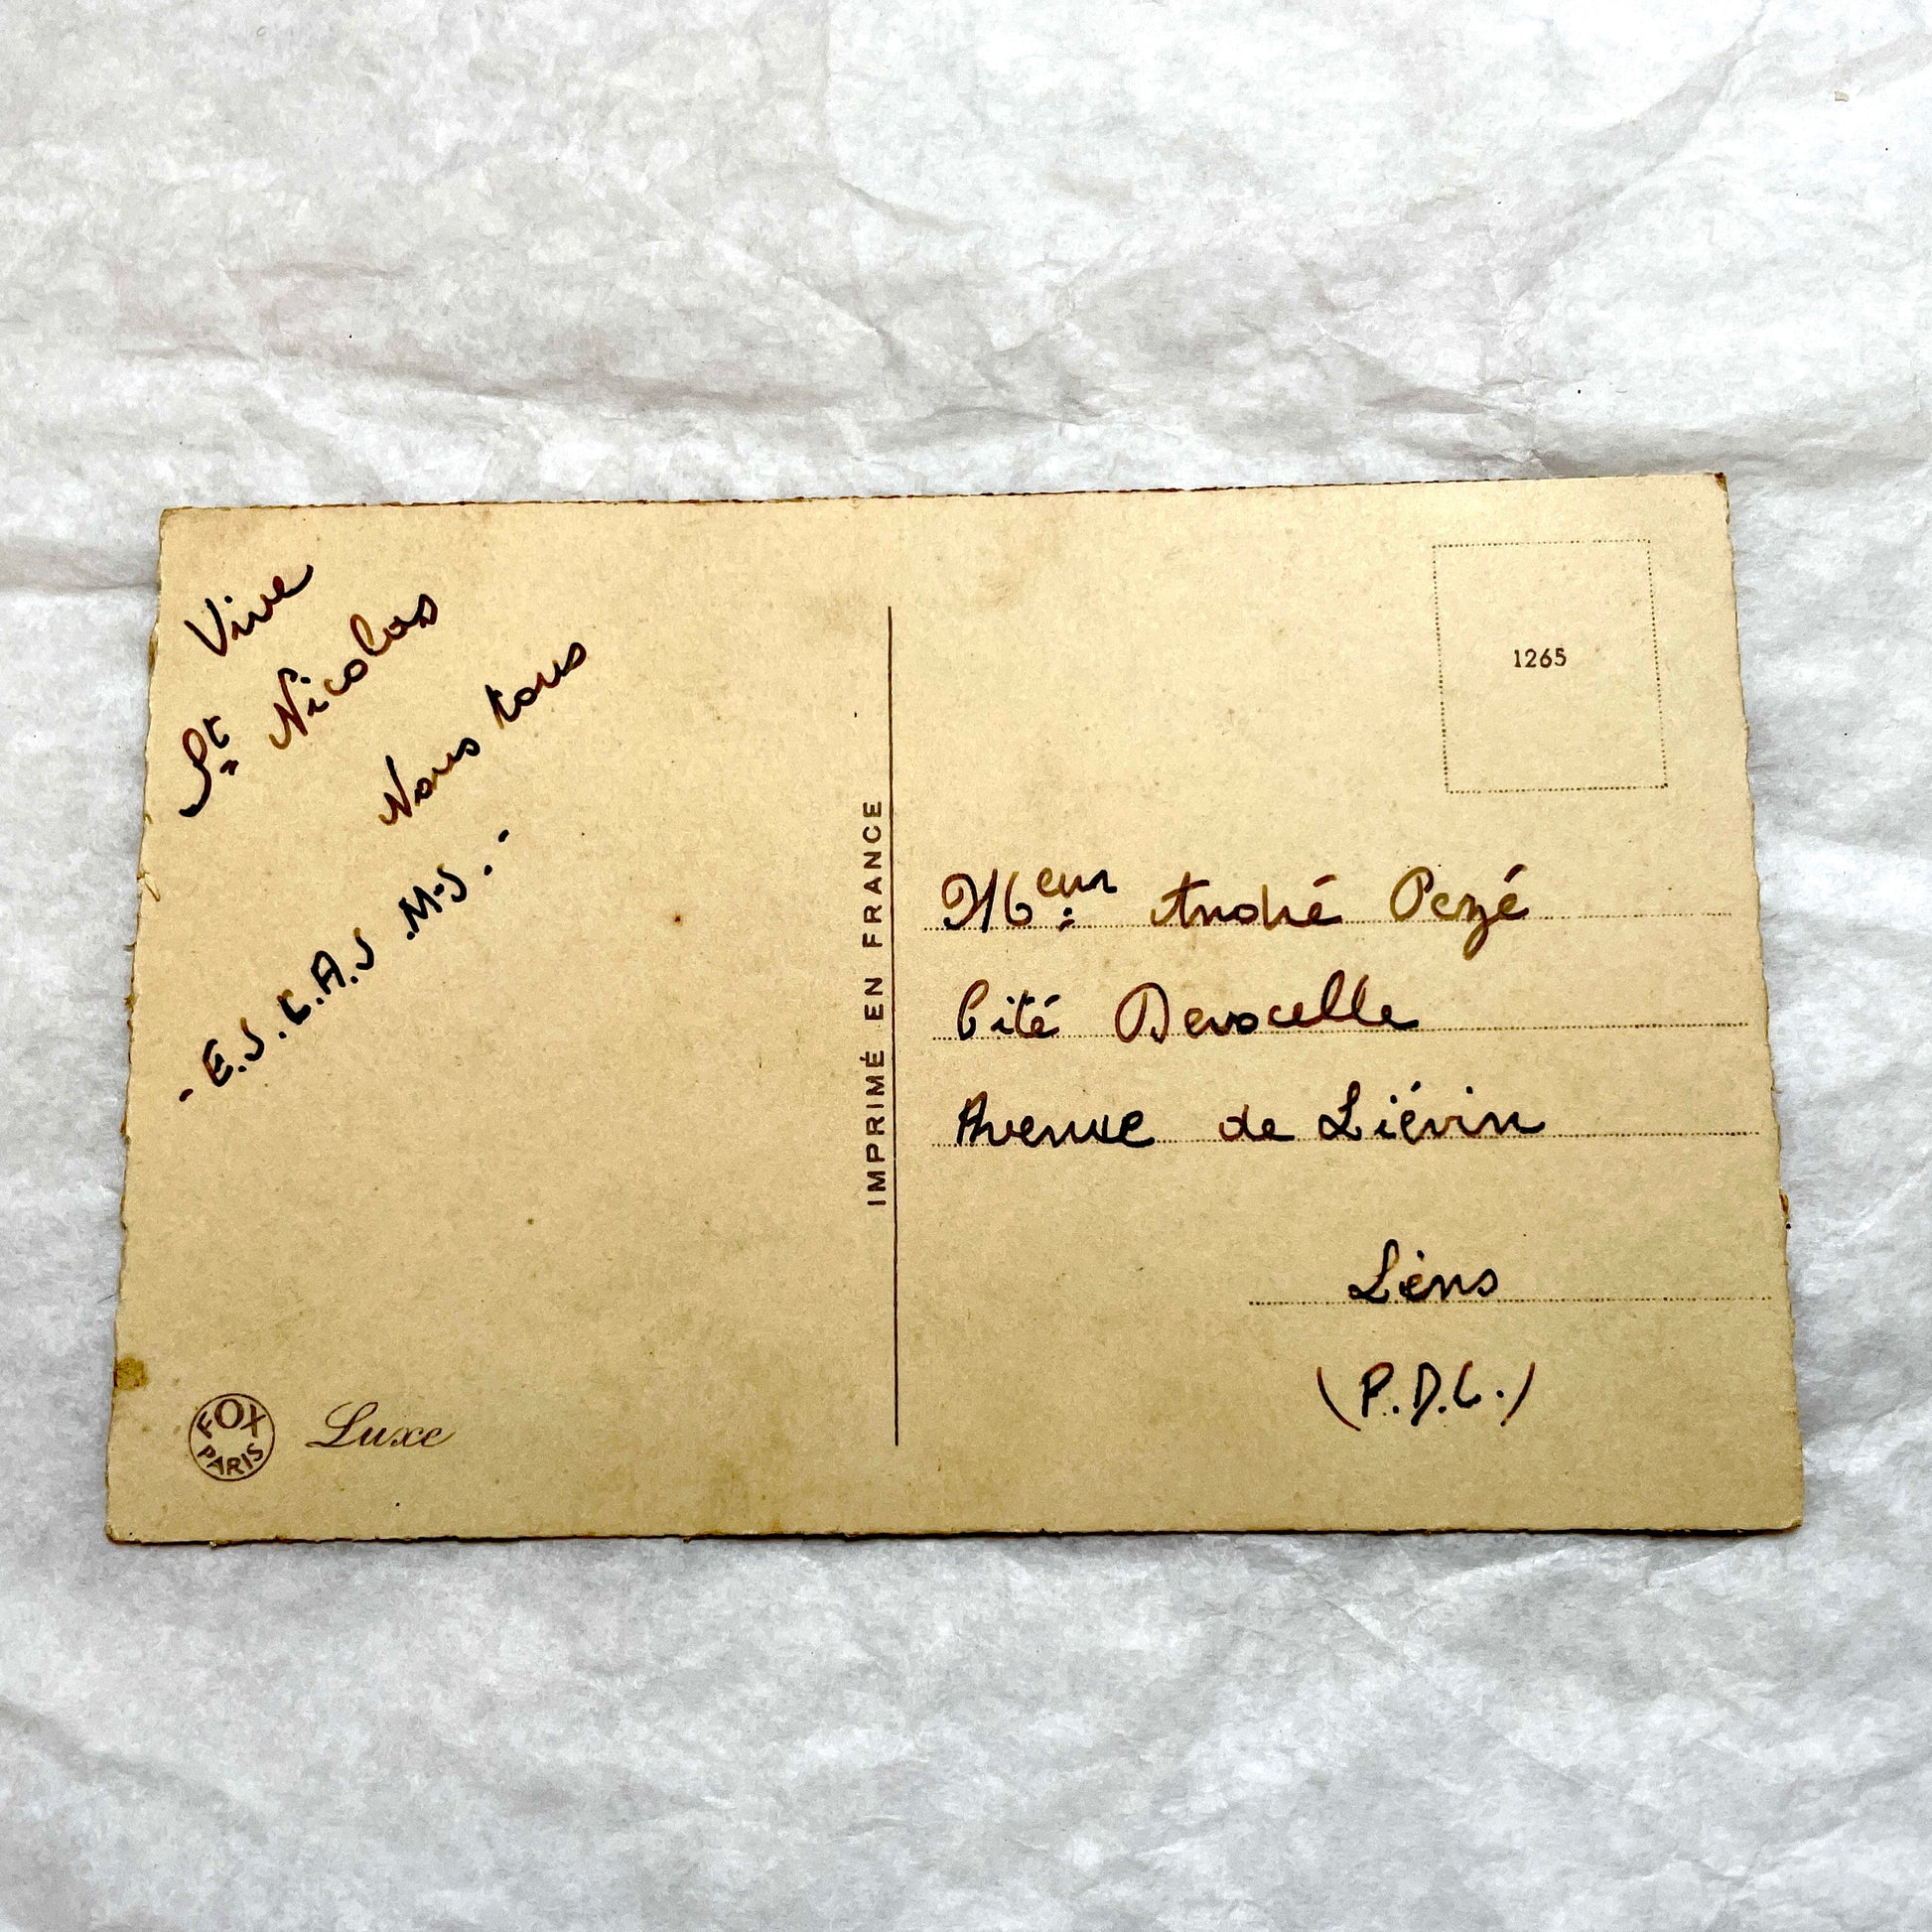 Vive
St Nicolas
Nous tous
- E.S.C.A.S .M.S. -
FOX
PARIS
Luxe
IMPRIMÉ EN FRANCE
1265
Meur André Pezé
Cité Devocelle
Avenue de Liévin
Lens
(P.D.C.)